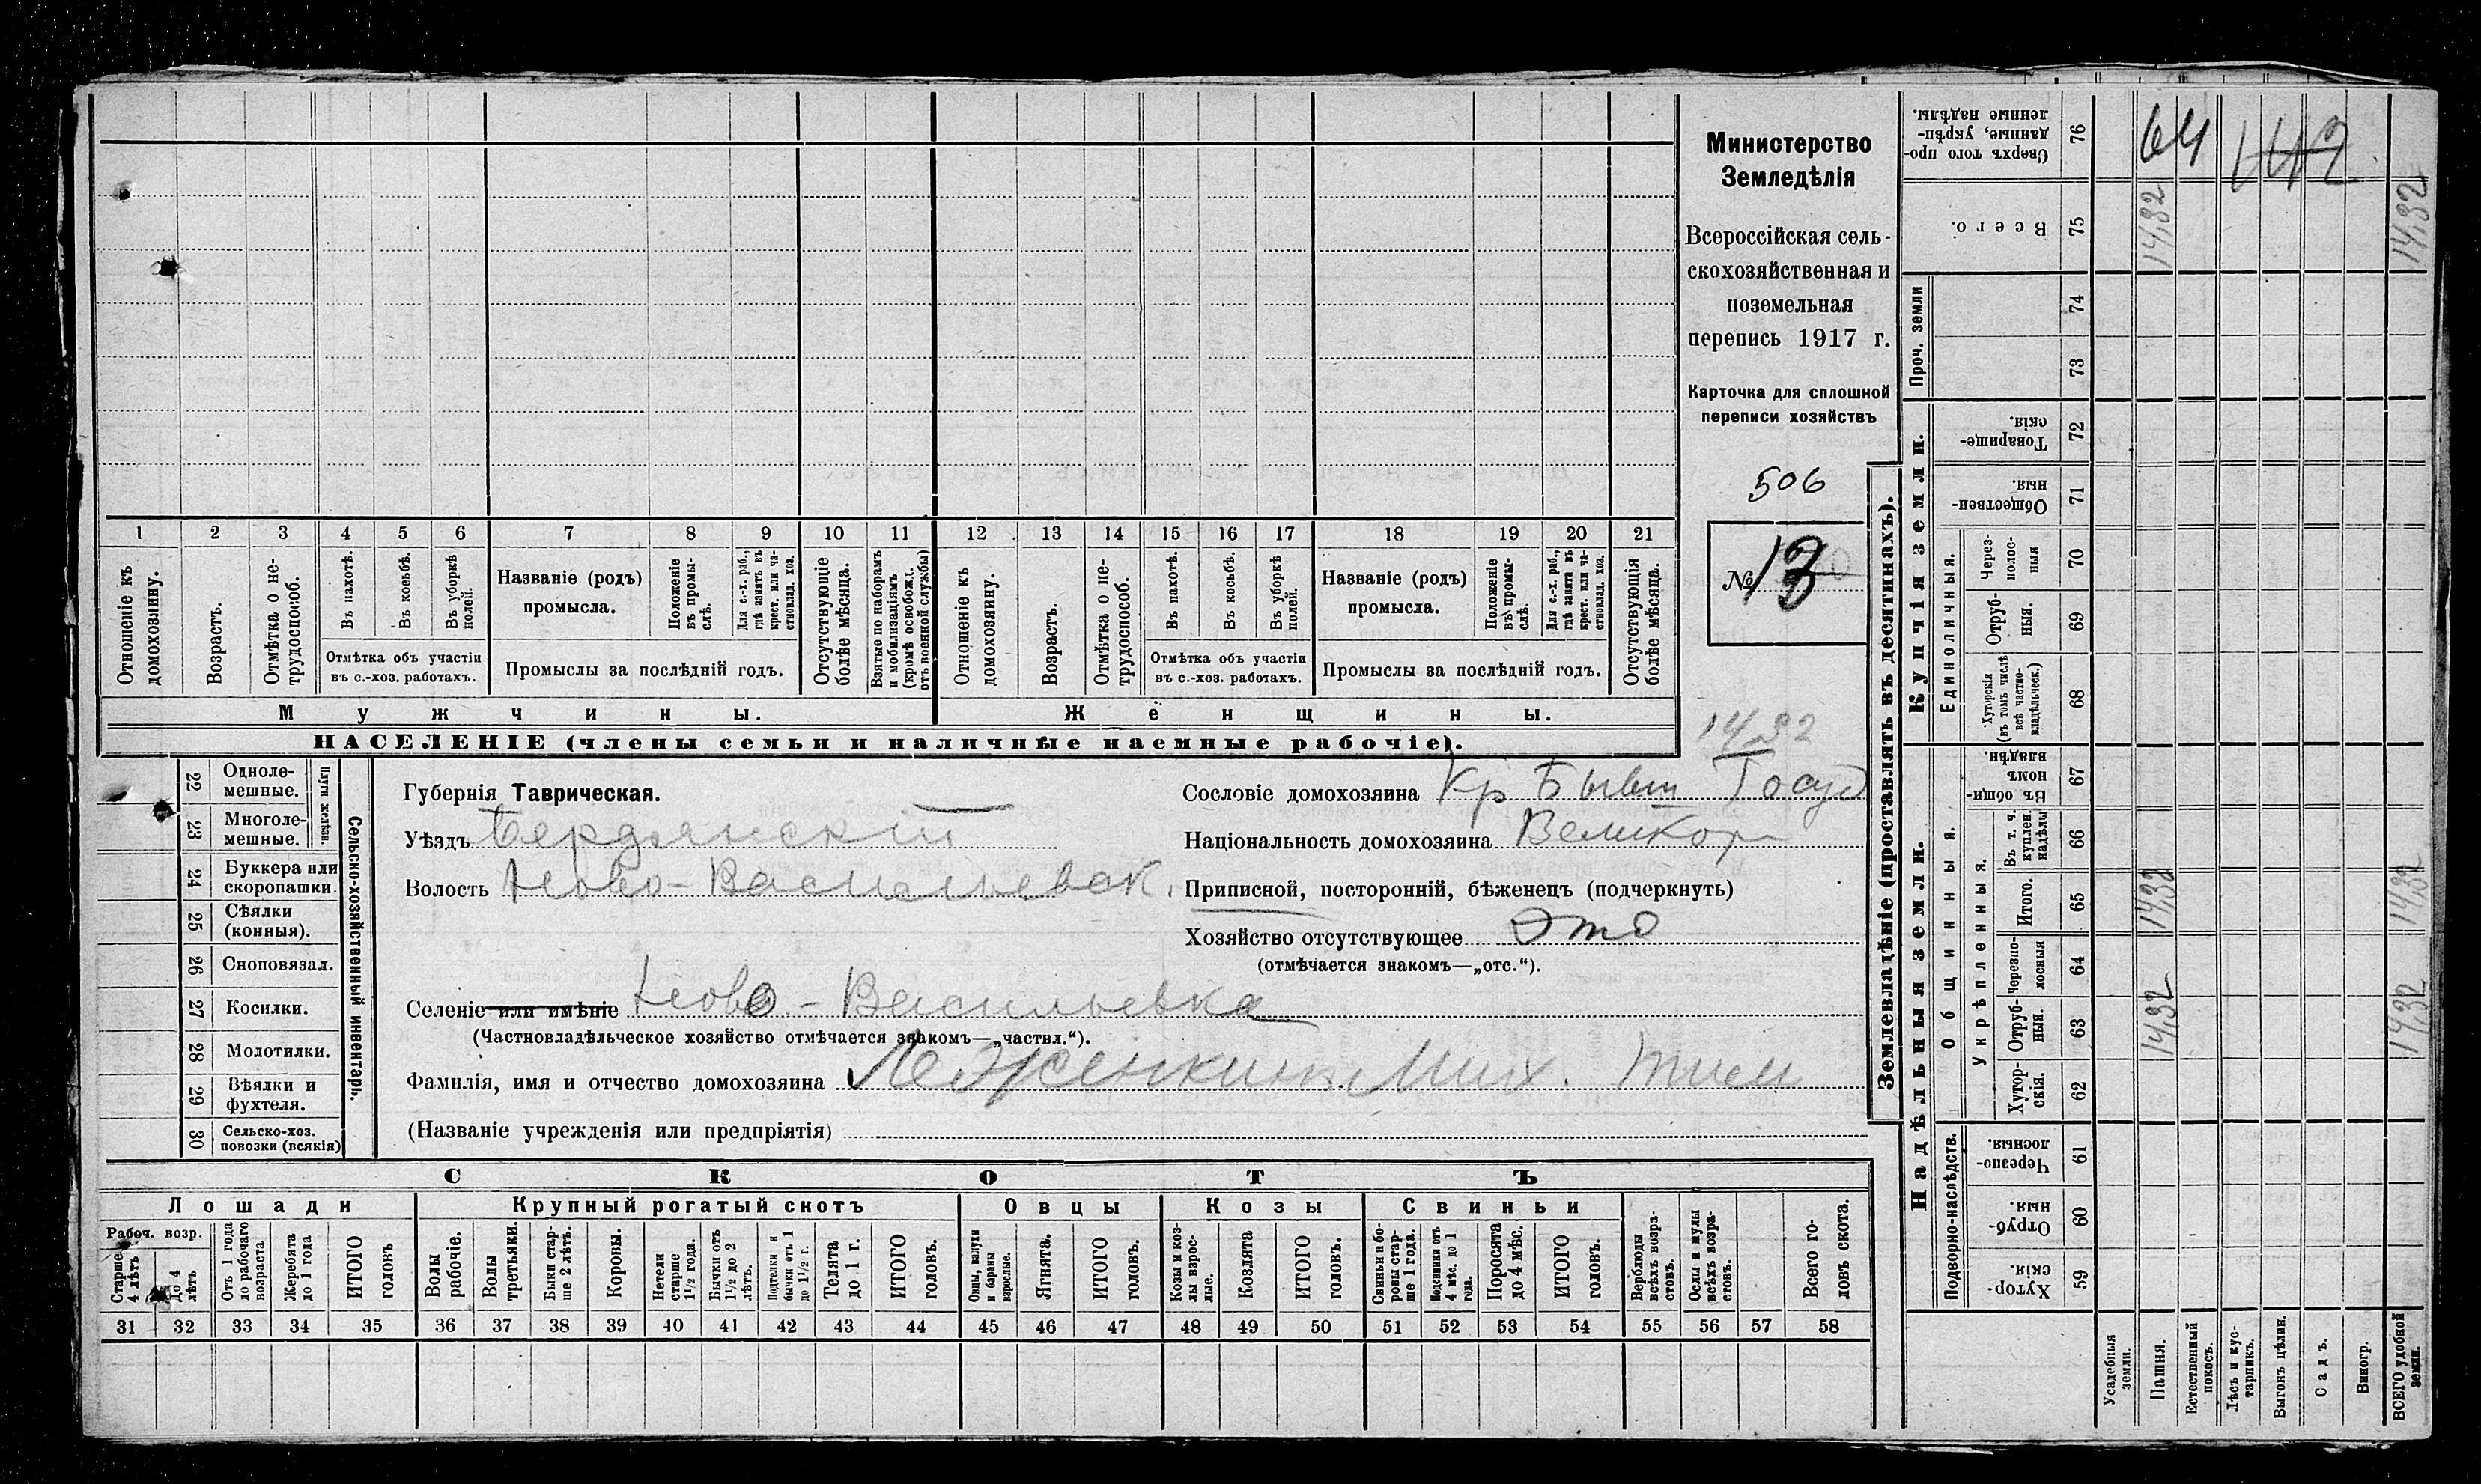 Министерство
Земледѣлія
Всероссійская сель-
скохозяйственная и
поземельная
перепись 1917 г.
Карточка для сплошной
переписи хозяйствъ
506
№ 13
14,32
1 2 3 4 5 6 7 8 9 10 11 12 13 14 15 16 17 18 19 20 21
Отношеніе къ домохозяину.
Возрастъ.
Отмѣтка о не-трудоспособ.
Въ пахотѣ.
Въ косьбѣ.
Въ уборкѣ полей.
Отмѣтка объ участіи
въ с.-хоз. работахъ.
Названіе (родъ)
промысла.
Положеніе въ промы-слѣ.
Для с.-х. раб., гдѣ занятъ въ крест. или ча-стновлад. хоз.
Промыслы за послѣдній годъ.
Отсутствующіе болѣе мѣсяца.
Взятые по наборамъ и мобилизаціямъ (кромѣ освобожд. отъ военной службы)
Отношеніе къ домохозяину.
Возрастъ.
Отмѣтка о не-трудоспособ.
Въ пахотѣ.
Въ косьбѣ.
Въ уборкѣ полей.
Отмѣтка объ участіи
въ с.-хоз. работахъ.
Названіе (родъ)
промысла.
Положеніе въ промы-слѣ.
Для с.-х. раб., гдѣ занята въ крест. или ча-стновлад. хоз.
Промыслы за послѣдній годъ.
Отсутствующія болѣе мѣсяца.
Мужчины.
Жёнщины.
НАСЕЛЕНІЕ (члены семьи и наличные наемные рабочіе).
Сельско-хозяйственный инвентарь.
Плуги желѣзн.
22 Одноле-мешные.
23 Многоле-мешные.
24 Буккера или скоропашки.
25 Сѣялки (конныя).
26 Сноповязал.
27 Косилки.
28 Молотилки.
29 Вѣялки и фухтеля.
30 Сельско-хоз. повозки (всякія)
Губернія Таврическая.
Уѣздъ Бердянскій
Волость Ново-Васильевск.
Сословіе домохозяина Кр Бывш Госуд
Національность домохозяина Великор
Приписной, посторонній, бѣженецъ (подчеркнуть)
Хозяйство отсутствующее
(отмѣчается знакомъ—„отс.“).
Селеніе или имѣніе Ново-Васильевка
(Частновладѣльческое хозяйство отмѣчается знакомъ—„частвл.“).
Фамилія, имя и отчество домохозяина Леженкинъ Мих. Тим
(Названіе учрежденія или предпріятія)
СКОТЪ
Лошади
Крупный рогатый скотъ
Овцы
Козы
Свиньи
Рабоч. возр.
Старше 4 лѣтъ
До 4 лѣтъ
Отъ 1 года до рабочаго возраста
Жеребята до 1 года
ИТОГО головъ
Волы рабочіе.
Волы третьяки.
Быки стар-ше 2 лѣтъ.
Коровы.
Нетели старше 1½ года.
Бычки отъ 1½ до 2 лѣтъ.
Подтелки и бычки отъ 1 до 1½ г.
Телята до 1 г.
ИТОГО головъ.
Овцы, валухи и бараны взрослые.
Ягнята.
ИТОГО головъ.
Козы и коз-лы взрос-лые.
Козлята
ИТОГО головъ.
Свиньи и бо-ровы стар-ше 1 года.
Подсвинки отъ 4 мѣс. до 1 года.
Поросята до 4 мѣс.
ИТОГО головъ.
Верблюды всѣхъ возра-стовъ.
Ослы и мулы всѣхъ возра-стовъ.
Всего го-ловъ скота.
31 32 33 34 35 36 37 38 39 40 41 42 43 44 45 46 47 48 49 50 51 52 53 54 55 56 57 58
Землевладѣніе (проставлять въ десятинахъ).
Сверхъ того про-данные, укрѣп-ленные надѣлы. 76 64
Всего. 75 14,32 14,32
Проч. земли
74
73
Купчія земли.
Товарище-скія. 72
Обществен-ныя. 71
Единоличныя.
Через-полос-ныя 70
Отруб-ныя. 69
Хуторскія (въ томъ числѣ всѣ частно-владѣльческ.) 68
Надѣльныя земли.
Общинныя.
Въ общин-номъ владѣн. 67
Укрѣпленныя.
Въ т. ч. куплен. надѣлы 66
Итого. 65 14,32 14,32
Черезпо-лосныя 64
Отруб-ныя. 63 14,32 14,32
Хутор-скія. 62
Подворно-наслѣдств.
Черезпо-лосныя. 61
Отруб-ныя. 60
Хутор-скія. 59
Усадебныя земли.
Пашня.
Естественный покосъ.
Лѣсъ и кус-тарникъ.
Выгонъ цѣлин.
Садъ.
Виногр.
ВСЕГО удобной земли.